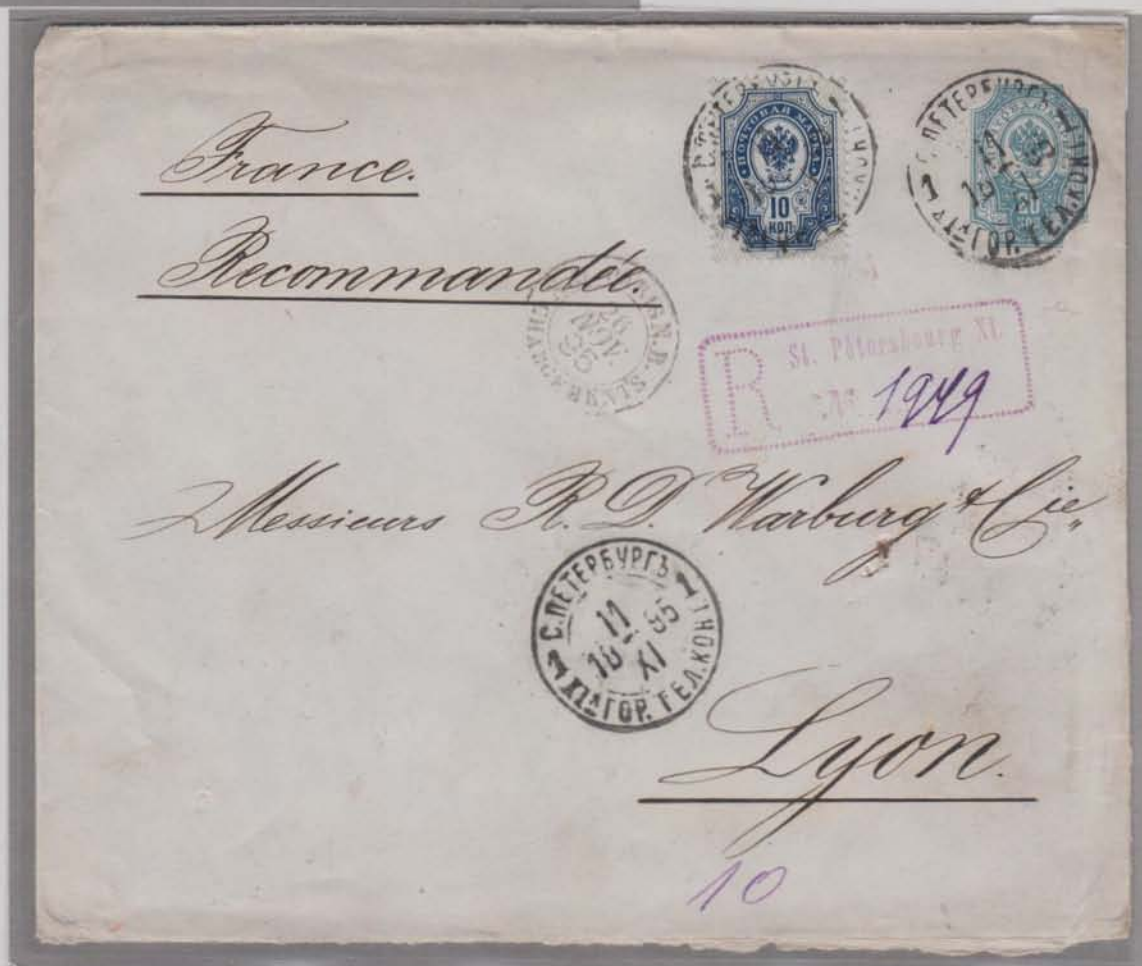 France.
Recommandée.
ПОЧТОВАЯ МАРКА
10
КОП.
С. ПЕТЕРБУРГЪ
1
ГОР. ТЕЛ. КОН
NOV
95
R
St. Pétersbourg XI.
№ 1949
Messieurs R. D. Warburg & Cie
С. ПЕТЕРБУРГЪ
11 95
18 XI
1 ГОР. ТЕЛ. КОН
Lyon.
10